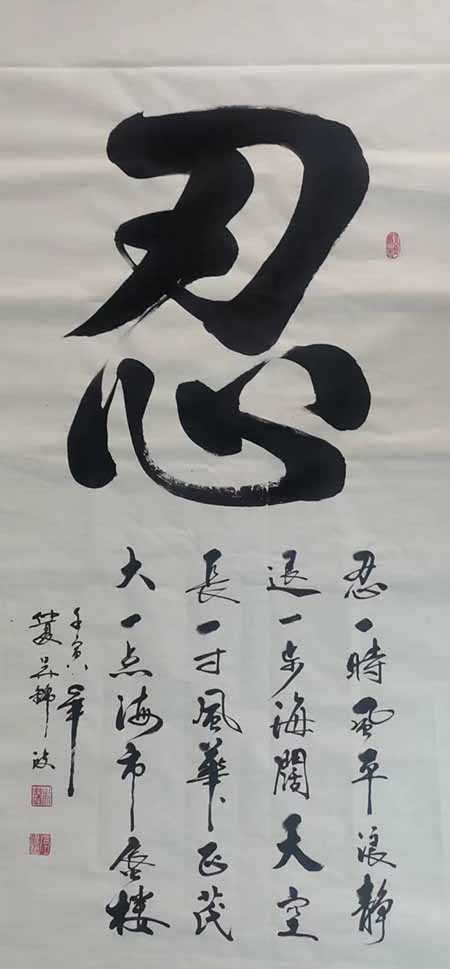 忍
忍一時風平浪静
退一步海闊天空
長一寸風華正茂
大一点海市蜃楼
壬寅